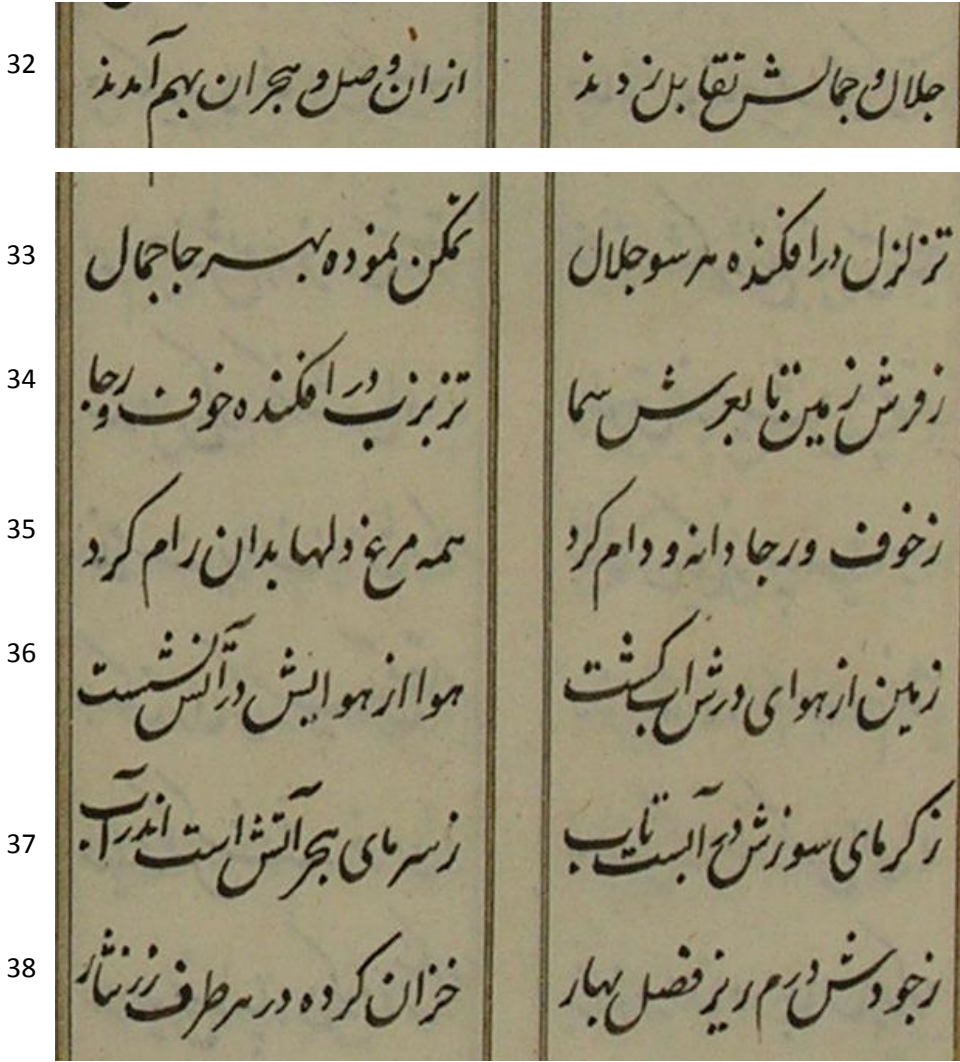 32 جلال و جمالش تقابل زدند از ان وصل و هجران بهم آمدند
33 تزلزل درافکنده هر سو جلال تمکن نموده بهر جا جمال
34 ز فرش زمین تا بعرش سما تزبزب درافکنده خوف و رجا
35 ز خوف و رجا دانه و دام کرد همه مرغ دلها بدان رام کرد
36 زمین از هوای درش اب کشت هوا از هوایش در آتش نشست
37 ز کرمای سوزش آبست تاب ز سرمای هجر آتش است اندر آب
38 ز جودش درم ریز فصل بهار خزان کرده در هر طرف زر نثار